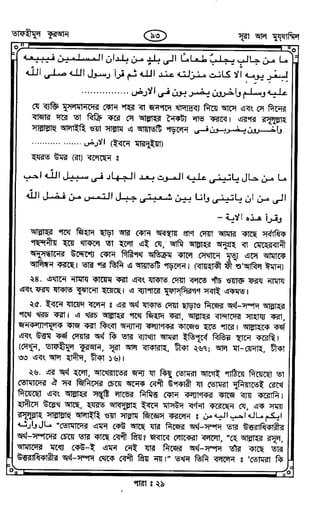 তাফহীমুল কুরআন
৯৩
সূরা আল মুয্যামিল
ما من جالب يجلب طعاما الى بلد من بلدان المسلمين فيبيعه
لسعر يومه الا كانت منزلته عند الله ثم قرأ رسول الله صلى الله
عليه وسلم واخرون يضربون فى الارض ..................
যে ব্যক্তি মুসলমানদের কোন শহর বা জনপদে খাদ্যদ্রব্য নিয়ে আসে এবং সে দিনের
বাজার দরে তা বিক্রি করে সে আল্লাহর নৈকট্য লাভ করবে। এরপর রসূলুল্লাহ
সাল্লাল্লাহু আলাইহি ওয়া সাল্লাম এ আয়াতটি পড়লেন واخـــرون يـضـــربـون فـــى
الارض ............... (ইবনে মারদুইয়া)
হযরত উমর (রা) বলেছেন ঃ
ما من حال يأتينى عليه الموت بعد الجهاد فى سبيل الله احب
الى من ان يأتينى وانا بين شعبتى جبل التمس من فضل الله
وقرأ هذه الاية -
আল্লাহর পথে জিহাদ ছাড়া আর কোন অবস্থায় প্রাণ দেয়া আমার কাছে সর্বাধিক
পছন্দনীয় হয়ে থাকলে তা হলো এই যে, আমি আল্লাহর অনুগ্রহ বা মেহেরবানী
অনুসন্ধানের উদ্দেশ্যে কোন গিরিপথ অতিক্রম কালে সেখানে মৃত্যু এসে আমাকে
আলিঙ্গন করছে। তার পর তিনি এ আয়াতটি পড়লেন। (বায়হাকী ফী শু'আবিল ঈমান)
২৪. এখানে নামায কায়েম করা এবং যাকাত দেয়া বলতে পাঁচ ওয়াক্ত ফরয নামায
এবং ফরয যাকাত বুঝানো হয়েছে। এ ব্যাপারে মুফাস্সিরগণ সবাই একমত।
২৫. ইবনে যায়েদ বলেন ঃ এর অর্থ যাকাত দেয়া ছাড়াও নিজের অর্থ-সম্পদ আল্লাহর
পথে খরচ করা। এ খরচ আল্লাহর পথে জিহাদ করা, আল্লাহর বান্দাদের সাহায্য করা,
জনকল্যাণমূলক কাজ করা কিংবা অন্যান্য কল্যাণকর কাজেও হতে পারে। আল্লাহকে কর্জ
এবং উত্তম কর্জ দেয়ার অর্থ কি তার ব্যাখ্যা আমরা ইতিপূর্বে বিভিন্ন স্থানে করেছি।
(দেখুন, তাফহীমুল কুরআন, সূরা আল বাকারাহ, টীকা ২৬৭; আল মা-য়েদাহ, টীকা
৩৩ এবং আল হাদীদ, টীকা ১৬)।
২৬. এর অর্থ হলো, আখেরাতের জন্য যা কিছু তোমরা আগেই পাঠিয়ে দিয়েছো তা
তোমাদের ঐ সব জিনিসের চেয়ে অনেক বেশী উপকারী যা তোমরা দুনিয়াতেই রেখে
দিয়েছো এবং আল্লাহর সন্তুষ্টি লাভের নিমিত্ত কোন কল্যাণকর কাজে ব্যয় করোনি।
হাদীসে উল্লেখ আছে, হযরত আবদুল্লাহ ইবনে মাসউদ বর্ণনা করেছেন যে, এক সময়
রসূলুল্লাহ সাল্লাল্লাহু আলাইহি ওয়া সাল্লাম জিজ্ঞেস করলেন ঃ ايكم ماله احب اليه من
مال وارثه "তোমাদের এমন কেউ আছে যার নিজের অর্থ-সম্পদ তার উত্তরাধিকারীর
অর্থ-সম্পদের চেয়ে তার কাছে বেশী প্রিয়? জবাবে লোকেরা বললো, "হে আল্লাহর রসূল,
আমাদের মধ্যে কেউ-ই এমন নেই যার নিজের অর্থ-সম্পদ তাঁর কাছে তার
উত্তরাধিকারীর অর্থ-সম্পদ থেকে বেশী প্রিয় নয়।" তখন তিনি বললেন ঃ 'তোমরা কি
পারা ঃ ২৯